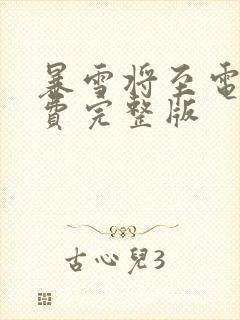 暴雪将至電
費完整版
古心兒3